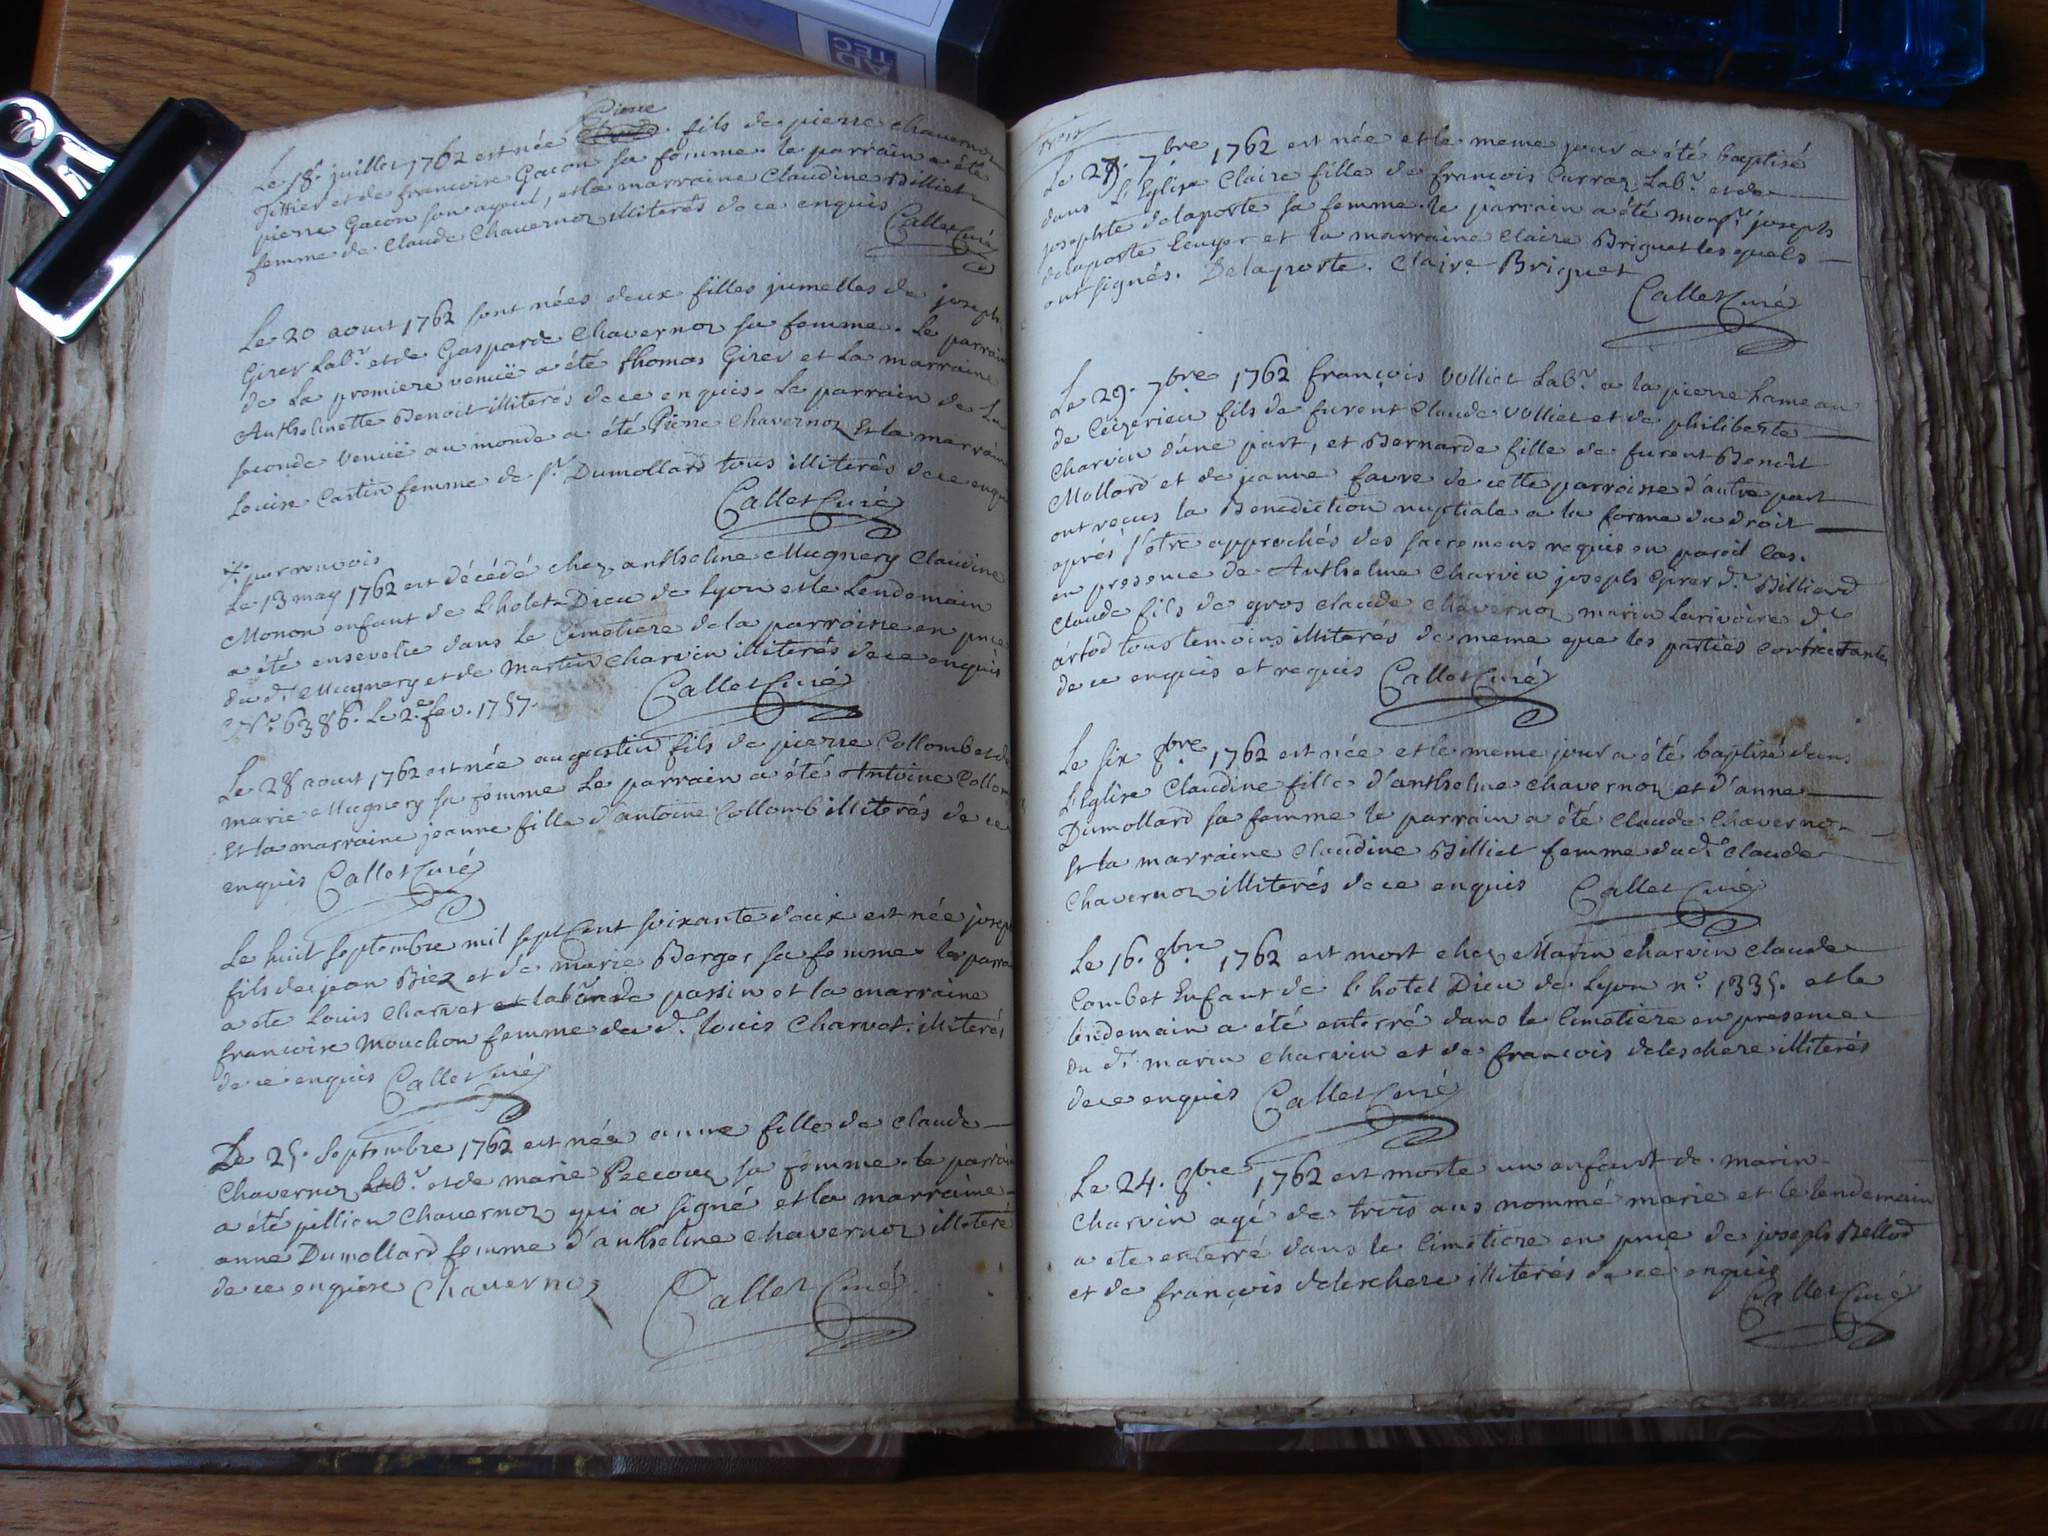 AD
TEC
Pierre
Le 18e juillet 1762 est née fils de pierre chavernoz
Tissier et de francoise Gacon sa femme. le parrain a été
pierre Gacon son ayeul, et la marraine Claudine Billiet
femme de Claude Chavernoz illiterés de ce enquis
Callet Curé
Le 20 aout 1762 sont nées deux filles jumelles de joseph
Girer Labr. et de Gasparde Chavernoz sa femme. Le parrain
de La premiere venuë a été thomas Girer et La marraine
Anthelinette Benoit illiterés de ce enquis. Le parrain de La
seconde venuë au monde a été Pierre Chavernoz Et la marraine
Louise Cartin femme de sr. Dumollard tous illiterés de ce enquis
Callet Curé
par renvois
Le 13 may 1762 est décédé chez anthelme Mugnery Claudine
Monon enfant de L'hotel-Dieu de Lyon et le Lendemain
a été ensevelie dans Le Cimetiere de la parroisse en pnce
du dt. Mugnery et de Martin Charvin illiterés de ce enquis
No. 6386. Le 2e. fev. 1757. Callet Curé
Le 28 aout 1762 est née augustin fils de pierre Collomb et de
marie Mugnery sa femme Le parrain a été Antoine Collomb
Et la marraine jeanne fille d'antoine Collomb illiterés de ce
enquis Callet Curé
Le huit septembre mil sept cent soixante deux est née joseph
fils de jean Biez et de marie Berger sa femme le parra
a ete Louis Charvet et labr. de passin et la marraine
francoise Mouchon femme du dt. louis Charvet. illiterés
de ce enquis Callet Curé
Le 25. Septembre 1762 est née anne fille de claude
Chavernoz Labr. et de marie Peecouz sa femme. le parrain
a été pillien Chavernoz qui a signé et la marraine
anne Dumollard femme d'anthelme chavernoz illiteré
de ce enquise Chavernoz Callet Curé
Le 27. 7bre 1762 est née et le meme jour a été baptisé
dans L'Eglise Claire fille de françois Carraz Labr. et de
josephte delaporte sa femme. le parrain a été monsr. joseph
delaporte Ecuyer et la marraine Claire Briguet les quels
ont signés. Delaporte. Claire Briguet
Callet Curé
Le 29. 7bre 1762 françois Volliet Labr. a la pierre hameau
de Ceÿzerieu fils de furent Claude Volliet et de philiberte
Charvin d'une part, et Bernarde fille de furent Benoît
Mollard et de jeanne favre de cette parroisse d'autre part
ont reçus la Benediction nuptiale a la forme du droit
aprés s'etre approchés des sacremens requis en pareil cas.
en presence de Anthelme Charvin joseph Girer dt. Billiard
Claude fils de gros claude Chavernoz marin Larivoire de
artod tous temoins illiterés de meme que les parties contractantes
de ce enquis et requis Callet Curé
Le six 8bre 1762 est née et le meme jour a été baptisé dans
L'Eglise Claudine fille d'anthelme chavernoz et d'anne
Dumollard sa femme le parrain a été Claude Chavernoz
Et la marraine Claudine Billiet femme du dt. Claude
Chavernoz illiterés de ce enquis Callet Curé
Le 16. 8bre 1762 est mort chez Marin charvin Claude
Combet Enfant de L'hotel Dieu de Lyon no. 1335. et le
lendemain a été enterré dans le Cimetiere en presence
du dt. marin charvin et de françois deleschere illiterés
de ce enquis Callet Curé
Le 24. 8bre 1762 est morte un enfant de marin
Charvin agé de trois ans nommé marie et le lendemain
a ete enterré dans le Cimetiere en pnce de joseph Bellod
et de françois deleschere illiterés de ce enquis
Callet Curé